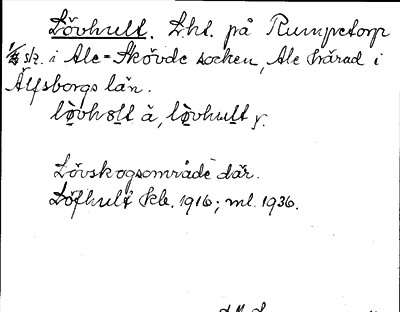 Lövhult. Lht. på Rumpetorp
i Ale-Skövde socken, Ale härad i
Älfsborgs län.
lövhult y.
Lövskogsområde där.
Löfhult Kb. 1916; ml. 1936.